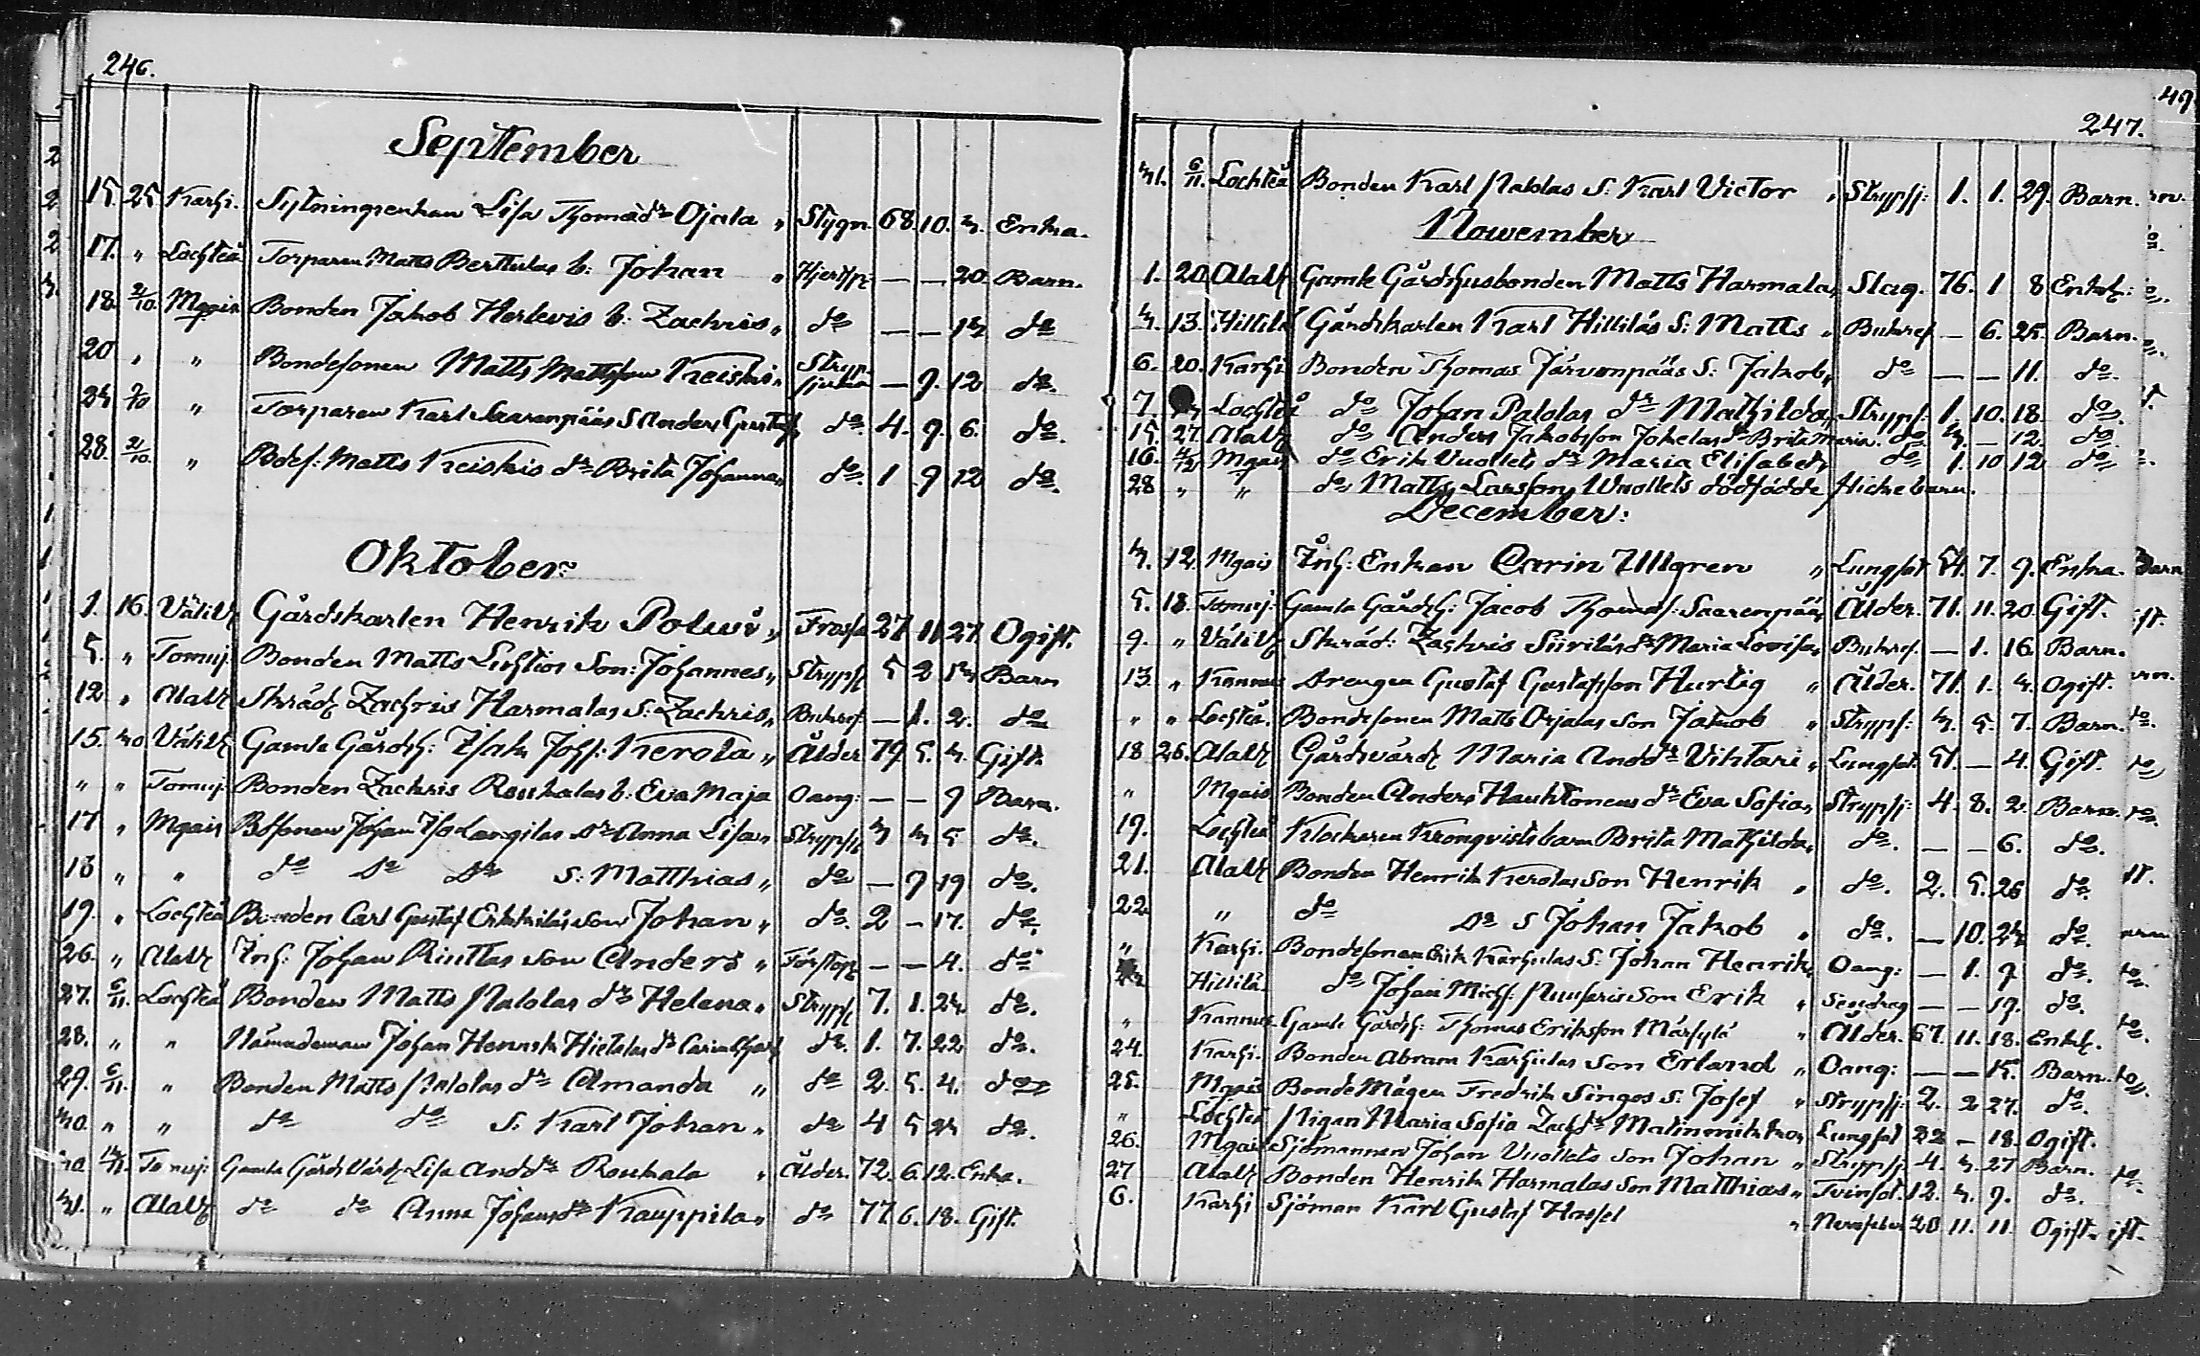 246.
September
15. 25. Karhi. Sytningsenkan Lisa Thomædr Ojala " Stygn. 68. 10. 3. Enka.
17. " Lochteå Torparen Matts Berttulas b: Johan " Hjertspr: — — 20. Barn.
18. 2/10. Mgais Bonden Jakob Herlevis b: Zachris " do — — 13 do
20 " " Bondesonen Matts Mattsson Keiskis " Stryp-sjuka — 9. 12 do.
" Torparen Karl Saarenpääs S Anders Gustaf do. 4. 9. 6. do.
28. 2/10. " Bdes: Matts Keiskis dr Brita Johanna " do. 1 9 12 do.
Oktober:
1. 16. Välikl Gårdskarlen Henrik Polusi " Frossa 27 11 27. Ogift.
5. " Tomuj: Bonden Matts Luhtios Son: Johannes " Strypsj 5 2 Barn
12. " Alalk Skräd Zachris Harmalas S: Zachris " Bukref — 1. 2. do
15. 30 Välikl Gamle Gårdsh: Isak Johs: Kerola " Ålder 79. 5. 3. Gift.
" " Tomuj: Bonden Zachris Roukalas b: Eva Maja Oang: — — 9 Barn.
17 " Mgais Bdsonen Johan Iso Langilas dr Anna Lisa " Strypsj 3 3 5 do.
18 " " do do do S: Matthias " do — 9 19 do.
19. " Lochteå Bonden Carl Gustaf Erkkiläs son Johan " do. 2 — 17. do.
26. " Alalk Inh: Johan Rinttas son Anders " — — 4. do
27. 6/11. Lochteå Bonden Matts Palolas dr Helena " Strypsj 7. 1. 23. do.
28. " " Nämndeman Johan Henrik Hietalas dr Carin do. 1. 7. 22 do.
29. 6/11. " Bonden Matts Palolas dr Amanda " do 2. 5. 4. do
30. " " do do S: Karl Johan " do 4 5 23 do.
30. Tomuj: Gamla Gårds Värd: Lisa Anddr Roukala " Ålder. 72. 6. 12. Enka.
31. " Alalk do do Anna Johansdr Kauppila " do 77 6. 18. Gift.
247.
31. 6/11. Lochteå Bonden Karl Palolas S: Karl Victor " Strypsj: 1. 1. 29. Barn.
Nowember
1. 20. Alalk Gamle Gårdshusbonden Matts Harmala " Slag. 76. 1 8 Enkl:
3. 13. Hillilä Gårdskarlen Karl Hilliläs S: Matts " Bukref — 6. 25. Barn.
6. 20. Karhi Bonden Thomas Järvenpääs S: Jakob " do — — 11. do.
7. Lochteå do Johan Palolas dr Mathilda " Strypsj. 1. 10. 18. do.
15. 27. Alalk do Anders Jakobsson Jokelas dr Brita Maria. do 3. — 12. do.
16. 4/12 Mgais do Erik Vuollets dr Maria Elisabet " do 1. 10 12 do
28 " " do Matts Larsson Wuollets dödfödde flickebarn.
December:
3. 12. Mgais Inh: Enkan Carin Ullgren " Lungsot 54. 7. 9. Enka.
5. 18. Tomuj: Gamla Gårdsh: Jacob Thomas: Saarenpää " Ålder. 71. 11. 20. Gift.
9. " Välikl Skräd: Zachris Siiriläs dr Maria Lovisa " Bukref. — 1. 16. Barn.
13 " Kannus Drengen Gustaf Gustafsson Hurtig " Ålder. 71. 1. 4. Ogift.
" " Lochteå. Bondesonen Matts Orjalas son Jakob " Strypsj: 3. 5. 7. Barn.
18 26. Alalk Gårdsvärd Maria Anddr Viktari " Lungsot. 51. — 4. Gift.
" Mgais Bonden Anders Hauhtonens dr Eva Sofia " Strypsj: 4. 8. 2. Barn.
19. Lochteå Klockaren Kronqvists barn Brita Mathilda " do. — — 6. do.
21. Alalk Bonden Henrik Kerolas son Henrik " do. 2. 5. 26 do.
22 " do do S Johan Jakob " do. — 10. 23 do.
" Karhi. Bondesonen Erik Karhulas S: Johan Henrik " Oang: — 1. 9. do.
Hillilä. do Johan Michs: Nuuharis son Erik " Sendrag — — 19. do.
" Kannus Gamle Gårdsh: Thomas Eriksson Märsylä " Ålder. 67. 11. 18. Enkl.
24. Karhi. Bonden Abram Karhulas son Erland " Oang: — — 15. Barn.
25. Mgais Bonde Mågen Fredrik Singos S: Josef " Strypsj: 2. 2 27. do.
" Lochteå Pigan Maria Sofia Zachdr Matinmikko " Lungsot 22 — 18. Ogift.
26. Mgais Sjömannen Johan Vuollets son Johan " Strypsj 4. 3. 27 Barn.
27 Alalk Bonden Henrik Harmalas son Matthias " Tvinsot. 12. 3. 9. do.
6. Karhi Sjöman Karl Gustaf Hassel " Nervfeber 20 11. 11. Ogift.
49